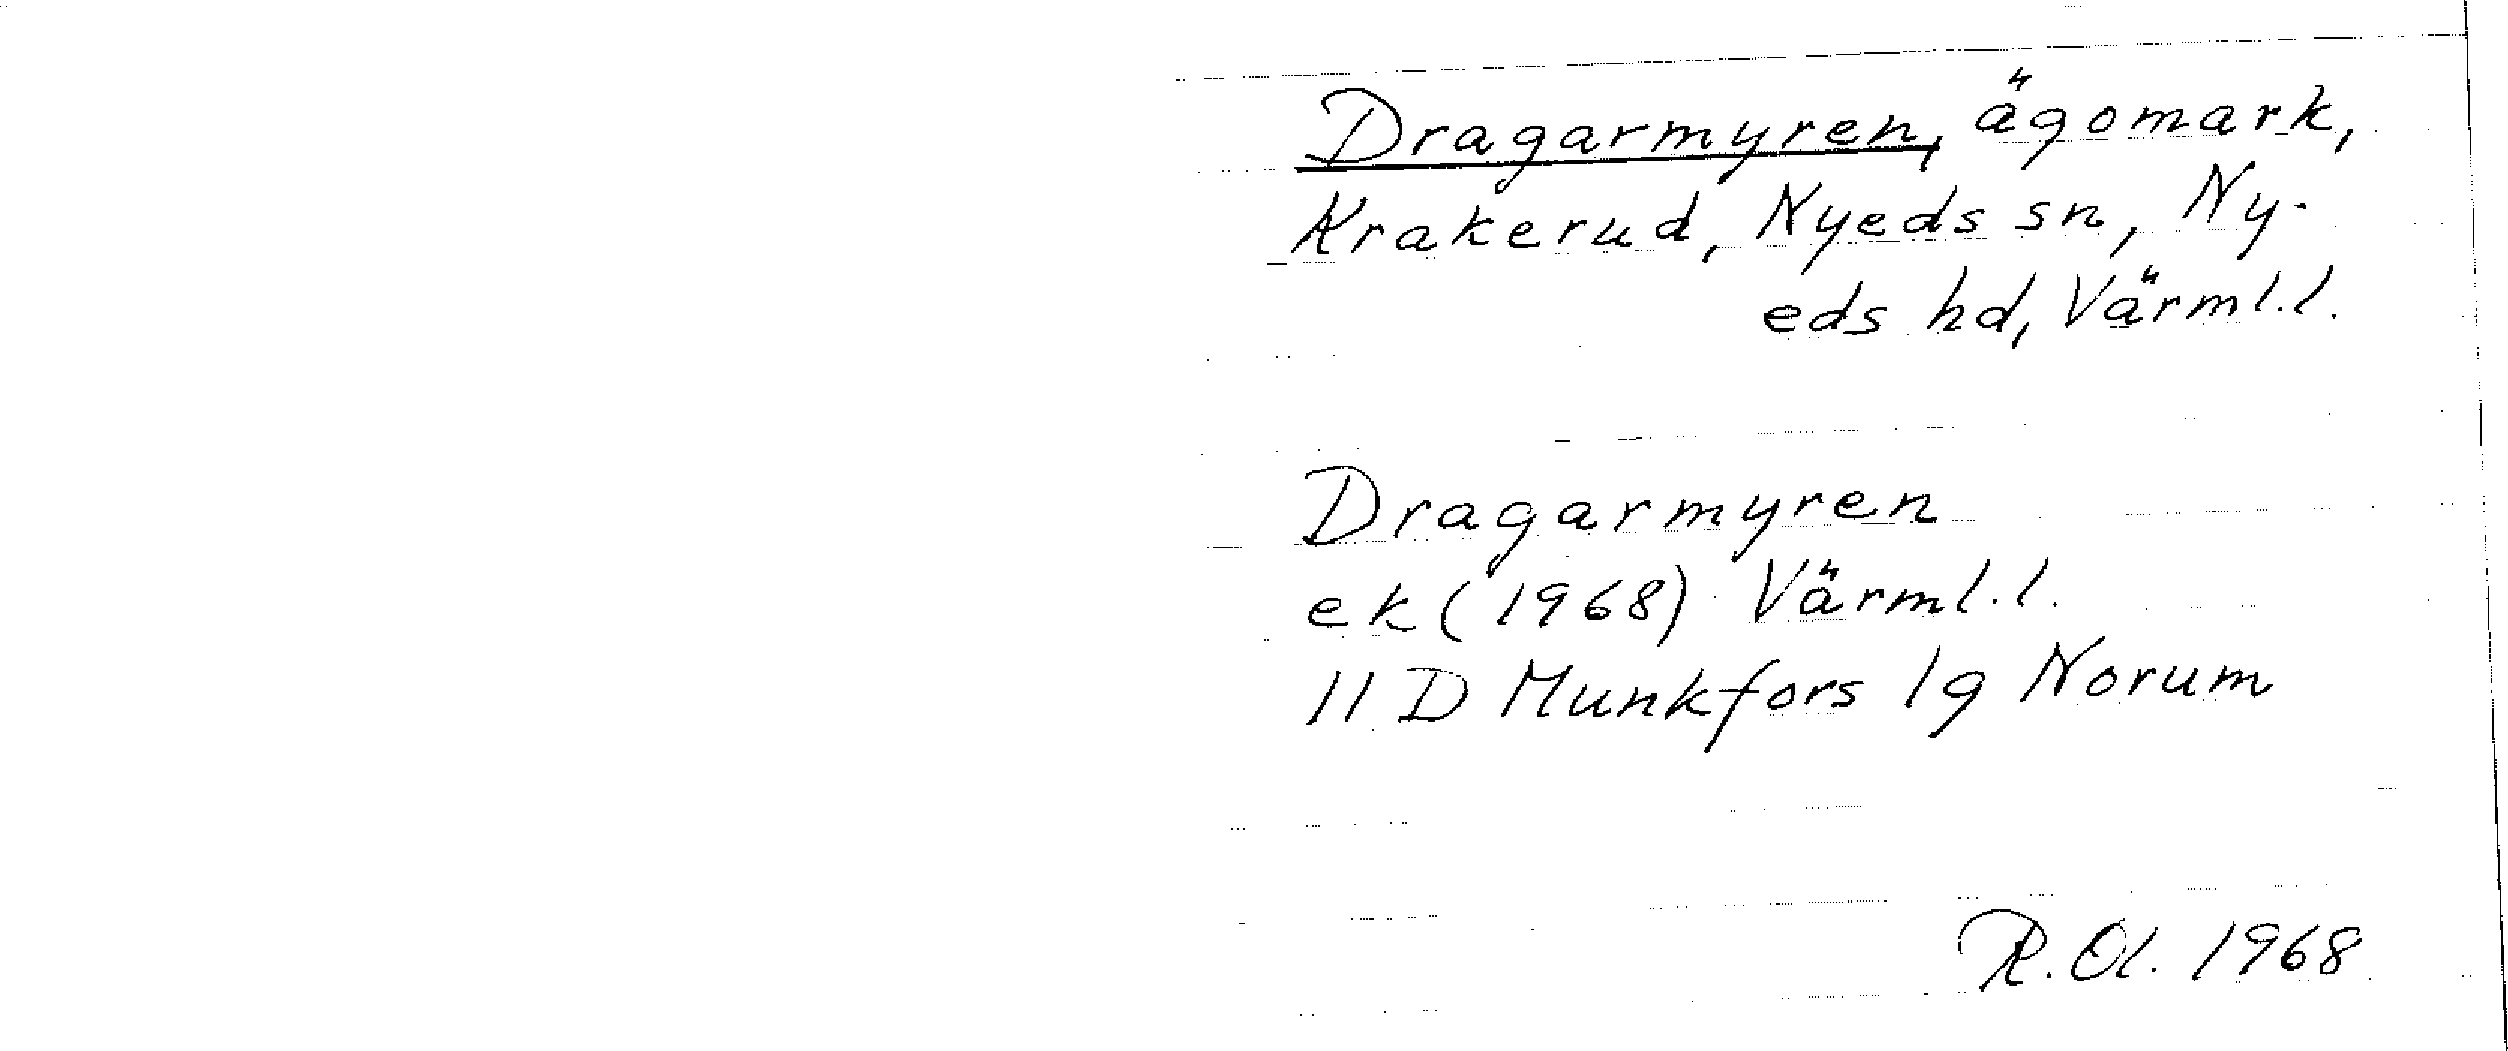 Dragarmyren, ägomark,
Krakerud, Nyeds sn, Ny-
eds hd, Värml.l.
Dragarmyren
ek (1968) Värml.l.
11 D Munkfors 1g Norum
R.Ol. 1968